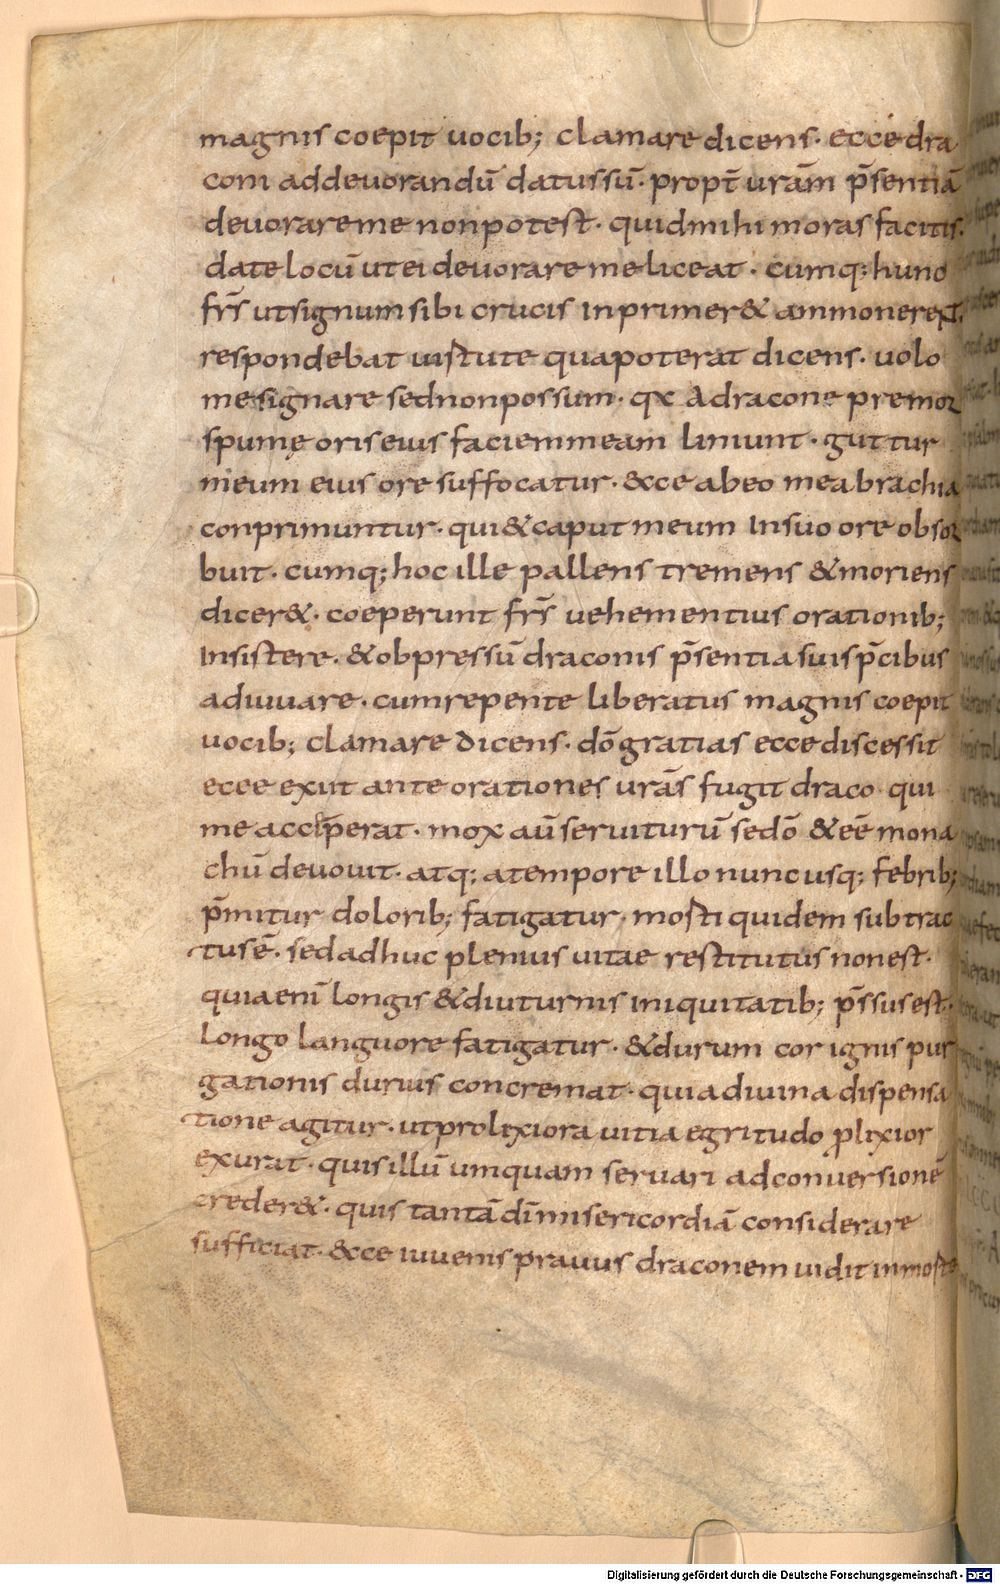 magnis coepit uocib; clamare dicens· ecce dra
coni addeuorandū datus sū· propt̄ urām p̄sentiā
deuorare me non potest· quid mihi moras facitis·
date locū ut ei deuorare me liceat· cumq; hunc
frs̄ ut signum sibi crucis inprimer& ammonerent
respondebat uirtute qua poterat dicens· uolo
me signare sed non possum· Adracone premor
spumę oris eius faciem meam liniunt· guttur
meum eius ore suffocatur· &ce abeo mea brachia
conprimuntur· qui & caput meum Insuo ore obsor
buit· cumq; hoc ille pallens tremens & moriens
dicer&· coeperunt frs̄ uehementius orationib;
Insistere· & obpressū draconis p̄sentia suis p̄cibus
adiuuare· cum repente liberatus magnis coepit
uocib; clamare dicens· dō gratias ecce discessit
ecce exiit ante orationes urās fugit draco qui
me acceperat· mox aū seruiturū se dō & eē mona
chū deuouit· atq; atempore illo nunc usq; febrib;
p̄mitur dolorib; fatigatur· morti quidem subtrac
tus ē· sed adhuc plenius uitae restitutus non est·
quia enī longis & diuturnis iniquitatib; p̄ssus est·
Longo languore fatigatur· & durum cor ignis pur
gationis durius concremat· quia diuina dispensa
tione agitur· ut prolixiora uitia egritudo plixior
exurat· quis illū umquam seruari ad conuersionē
creder&· quis tantā dī misericordiā considerare
sufficiat· &ce iuuenis prauus draconem uidit in morte
Digitalisierung gefördert durch die Deutsche Forschungsgemeinschaft - DFG